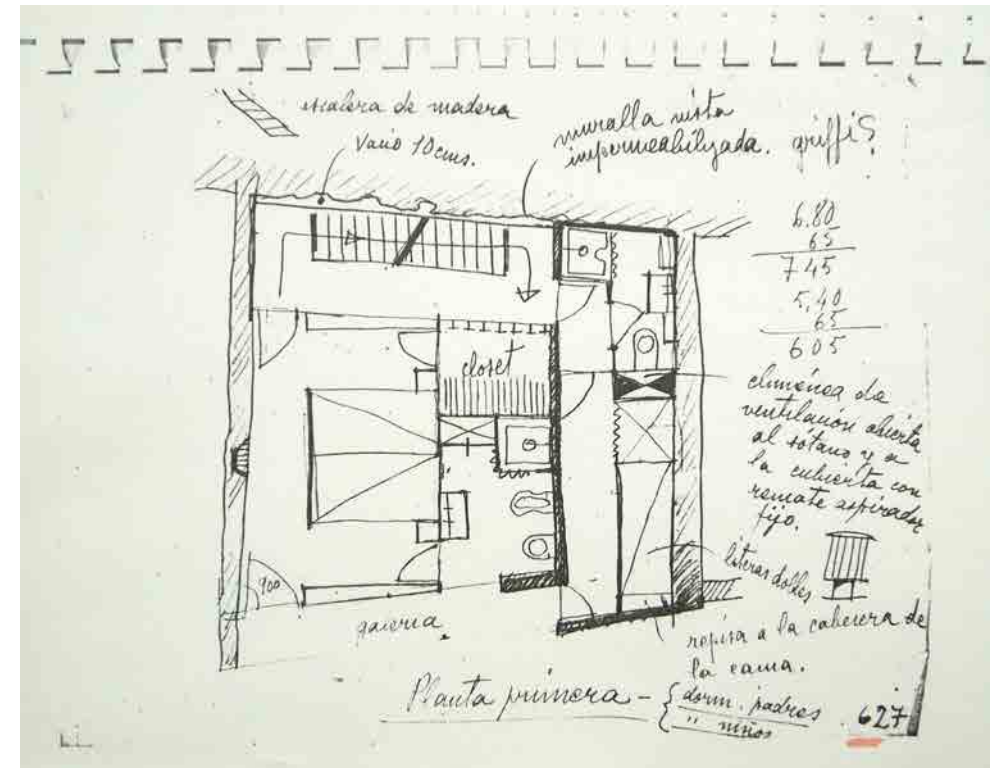 escalera de madera
Vacio 10cms.
muralla vista
impermeabilizada.
griffi?
6.80
65
745
5,40
65
605
closet
chiménea de
ventilación abierta
al sótano y a
la cubierta con
remate aspirador
fijo.
literas dobles
900
galeria
repisa a la cabecera de
la cama.
Planta primera - { dorm. padres
" niños
627